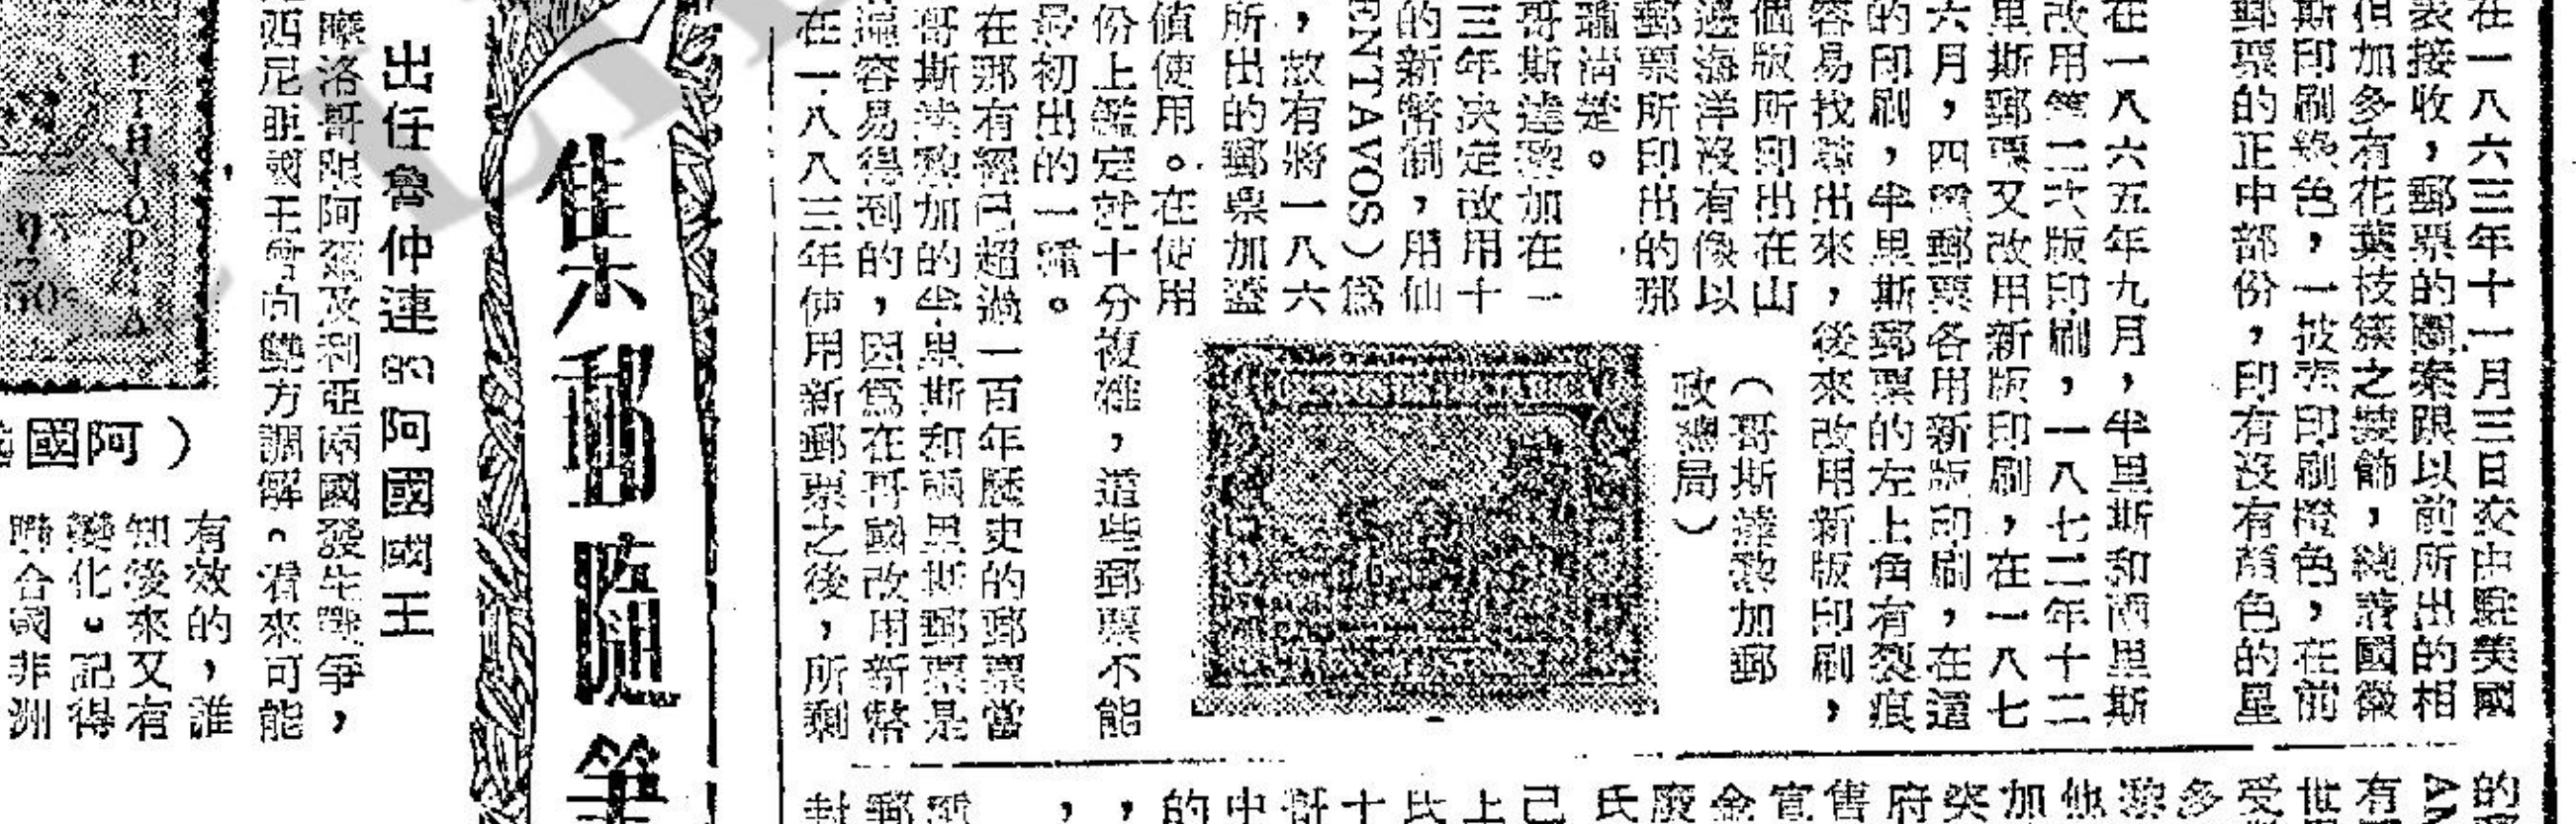 在一八六三年十一月三日交由駐美國
表接收，郵票的圖案跟以前所出的相
但加多有花葉技葉之裝飾，繞着國徽
斯印刷綠色，一披索印刷橙色，在前
郵票的正中部份，印有沒有顏色的星
在一八六五年九月，半里斯和兩里斯
改用第二次版印刷，一八七二年十二
里斯郵票又改用新版印刷，在一八七
六月，四個郵票各用新版印刷，在這
的印刷，半里斯郵票的左上角有裂痕
容易找尋出來，後來改用新版印刷，
個版所印出在山
邊海洋沒有像以
郵票所印出的那
清楚。
哥斯達黎加在一
三年決定改用十
的新幣制，用仙
ENTAVOS）為
，故有將一八六
所出的郵票加蓋
值使用。在使用
份上鑑定就十分複雜，這些郵票不能
最初出的一霈。
在那有經已超過一百年歷史的郵票當
哥斯達黎加的半里斯和兩里斯郵票是
容易得到的，因為在哥國改用新幣
在一八八三年使用新郵票之後，所剩
（哥斯達黎加郵
政總局）
的 AN 有世受多黎他加突府售官金廈氏
己上氏十哥中的，，郵封
集郵隨筆
出任魯仲連的阿國國王
摩洛哥跟阿爾及利亞兩國發生戰爭，
西尼亞國王曾向雙方調解。看來可能
有效的，誰
知後來又有
變化。記得
聯合國非洲
ETHIOPIA
50c
（阿國